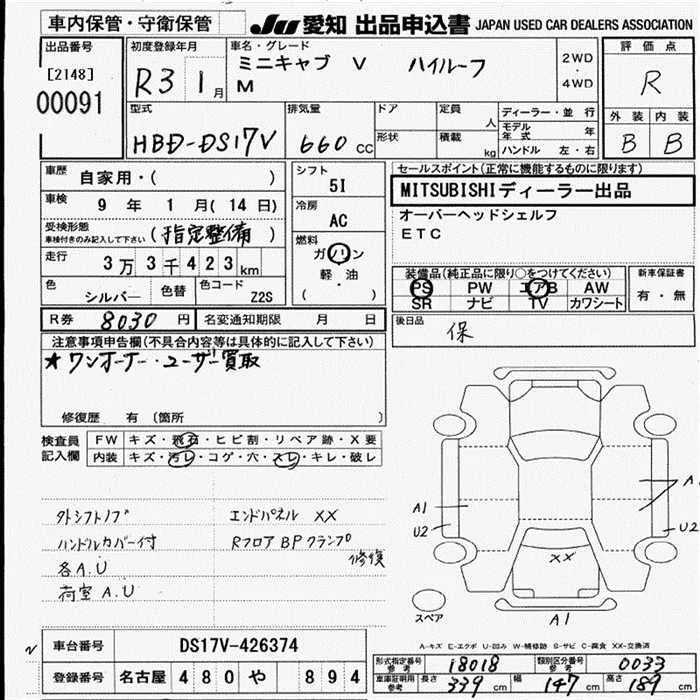 車内保管・守衛保管 JU 愛知 出品申込書 JAPAN USED CAR DEALERS ASSOCIATION
出品番号 初度登録年月 車名・グレード 2WD ・ 4WD 評価点
[2148] R3 1月 ミニキャブ V ハイルーフ R
00091 M
型式 排気量 ドア 定員 人 ディーラー・並行 外装 内装
HBD-DS17V 660 CC 形状 積載 kg モデル年式 年 B B
ハンドル 左・右
車歴 自家用・( ) シフト 5I セールスポイント(正常に機能するものに限ります)
車検 9年 1月(14日) 冷房 AC MITSUBISHIディーラー出品
受検形態 車検付きのみ記入して下さい (指定整備) オーバーヘッドシェルフ
燃料 ガソリン ETC
走行 3万3千423km 軽・油 ( ・ )
装備品(純正品に限り○をつけてください) 新車保証書
色 シルバー 色替 色コード Z2S PS PW エアB AW 有・無
SR ナビ TV カワシート
R券 8030円 名変通知期限 月 日 後日品 保
注意事項申告欄(不具合内容等は具体的に記入して下さい)
★ワンオーナー・ユーザー買取
修復歴 有 (箇所 )
検査員記入欄 FW キズ・飛石・ヒビ割・リペア跡・X要
内装 キズ・汚レ・コゲ・穴・スレ・キレ・破レ
外シフトノブ エンドパネル XX
ハンドルカバー付 Rフロア BPクランプ修復
各A.U
荷室A.U
A1 U2 A U2
XX
スペア A1
A-キズ E-エクボ U-凹み W-補修跡 S-サビ C-腐食 XX-交換済
車台番号 DS17V-426374
登録番号 名古屋 480 や 894
形式指定番号 参考 18018 類別区分番号 参考 0033
車庫証明用 参考 長さ 339 cm 幅 147 cm 高さ 189 cm